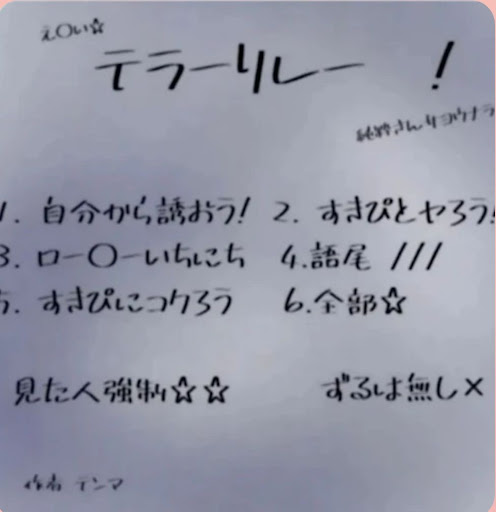 え〇い☆
テラーリレー！
純粋さんサヨウナラ
1. 自分から誘おう! 2. すきぴとヤろう!
3. ロー〇ーいちにち 4.語尾 ///
5. すきぴにコクろう 6.全部☆
見た人強制☆☆ ずるは無し×
作者 テンマ